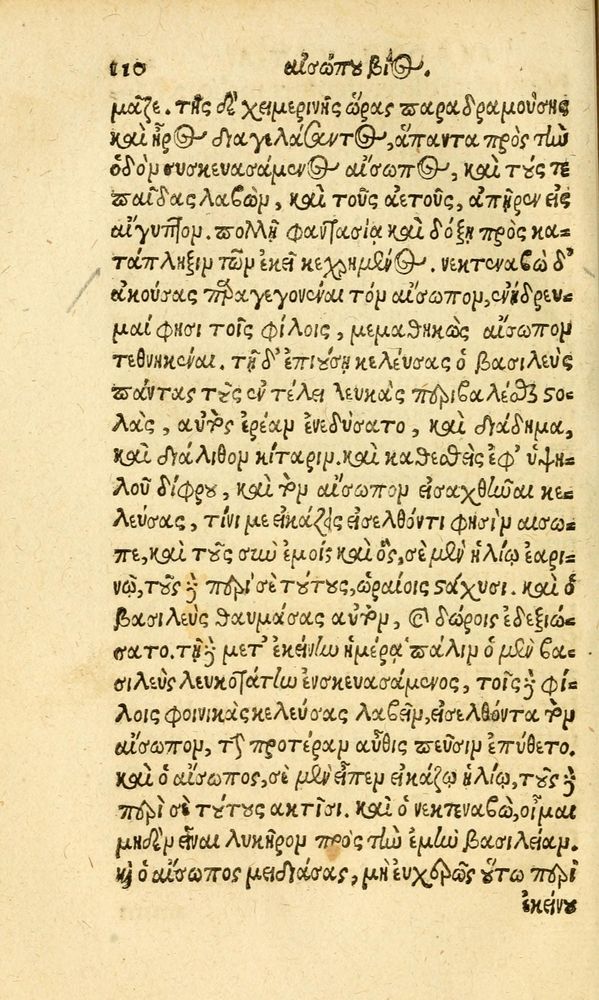 110 αἰσώπου βίος.
μαζε. τῆς δὲ χειμερινῆς ὥρας παραδραμούσης
καὶ ἦρος διαγελάσαντος, ἅπαντα πρὸς τὴν
ὁδὸν συσκευασάμενος αἴσωπος, καὶ τούς τε
παῖδας λαβὼν, καὶ τοὺς ἀετοὺς, ἀπῆρεν εἰς
αἴγυπτον. πολλῇ φαντασίᾳ καὶ δόξῃ πρὸς κα-
τάπληξιν τῶν ἐκεῖ κεχρημένος. νεκτεναβὼ δ'
ἀκούσας παραγεγονέναι τὸν αἴσωπον, ἐνήδρευ-
μαί φησι τοῖς φίλοις, μεμαθηκὼς αἴσωπον
τεθνηκέναι. τῇ δ' ἐπιούσῃ κελεύσας ὁ βασιλεὺς
πάντας τοὺς ἐν τέλει λευκὰς περιβαλέσθαι στο-
λὰς, αὐτὸς ἐρέαν ἐνεδύσατο, καὶ διάδημα,
καὶ διάλιθον κίταριν. καὶ καθεσθεὶς ἐφ' ὑψη-
λοῦ δίφρου, καὶ τὸν αἴσωπον εἰσαχθῆναι κε-
λεύσας, τίνι με εἰκάζεις εἰσελθόντι φησὶν αἴσω-
πε, καὶ τοὺς σὺν ἐμοί; καὶ ὃς, σὲ μὲν ἡλίῳ ἐαρι-
νῷ, τοὺς δὲ περὶ σὲ τούτους, ὡραίοις στάχυσι. καὶ ὁ
βασιλεὺς θαυμάσας αὐτὸν, καὶ δώροις ἐδεξιώ-
σατο. τῇ δὲ μετ' ἐκείνην ἡμέρᾳ πάλιν ὁ μὲν βα-
σιλεὺς λευκοτάτην ἐνσκευασάμενος, τοῖς δὲ φί-
λοις φοινικὰς κελεύσας λαβεῖν, εἰσελθόντα τὸν
αἴσωπον, τὴν προτέραν αὖθις πεῦσιν ἐπύθετο.
καὶ ὁ αἴσωπος, σὲ μὲν εἶπεν εἰκάζω ἡλίῳ, τοὺς δὲ
περὶ σὲ τούτους ἀκτῖσι. καὶ ὁ νεκτεναβὼ, οἶμαι
μηδὲν εἶναι λυκῆρον πρὸς τὴν ἐμὴν βασιλείαν.
καὶ ὁ αἴσωπος μειδιάσας, μὴ εὐχερῶς οὕτω περὶ
ἐκείνου